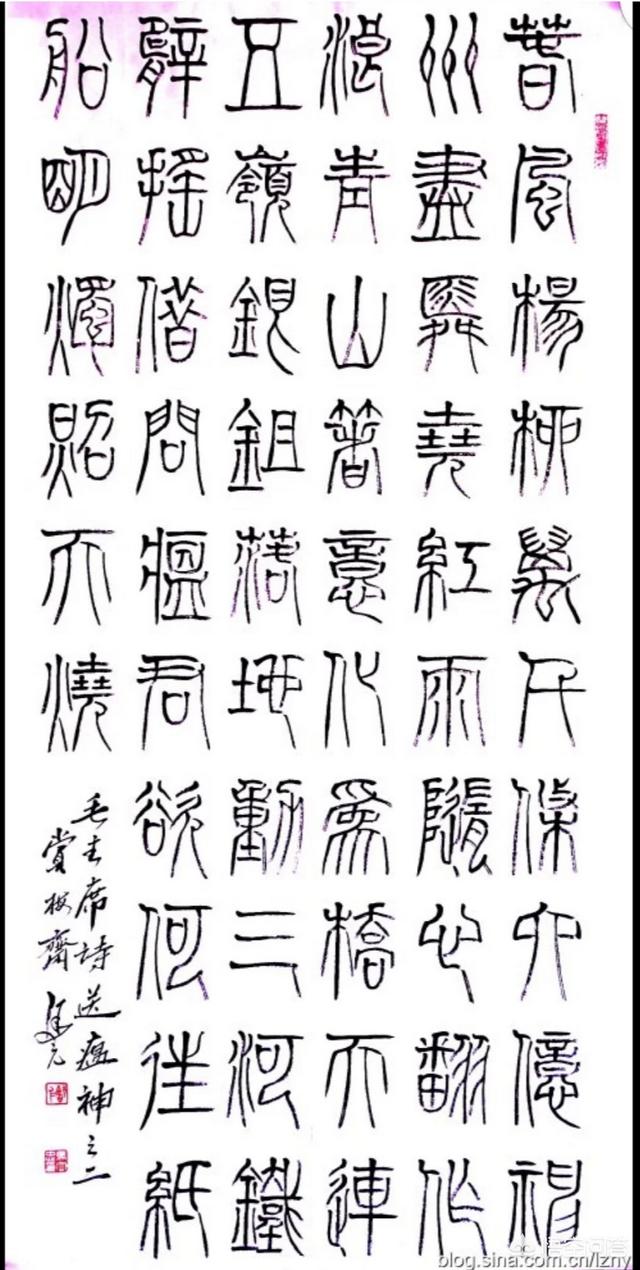 春風楊柳萬千條六億神
州盡舜堯紅雨隨心翻作
浪青山著意化爲橋天連
五嶺銀鉏落地動三河鐵
臂搖借問瘟君欲何往紙
船明燭照天燒
毛主席詩送瘟神之二
齋
悟空问答
blog.sina.com.cn/lzny